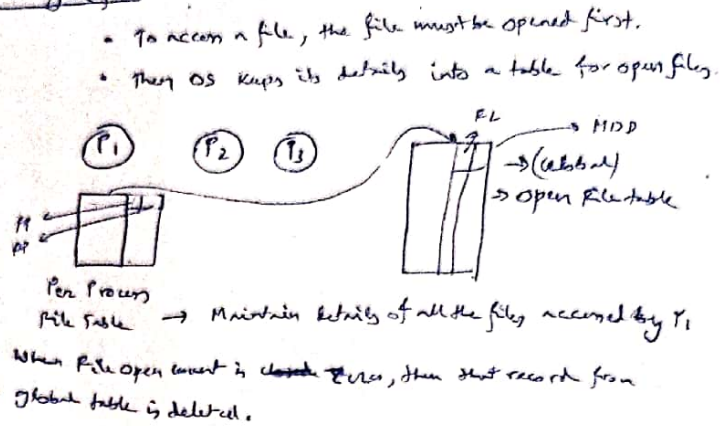 • To access a file, the file must be opened first.
• Then OS keeps its details into a table for open files.
P1 P2 P3
FL
MDD
→ (Global)
→ Open File table
Per Process
File Table → Maintain details of all the files accessed by P1
When File open count is zero, then that record from
global table is deleted.